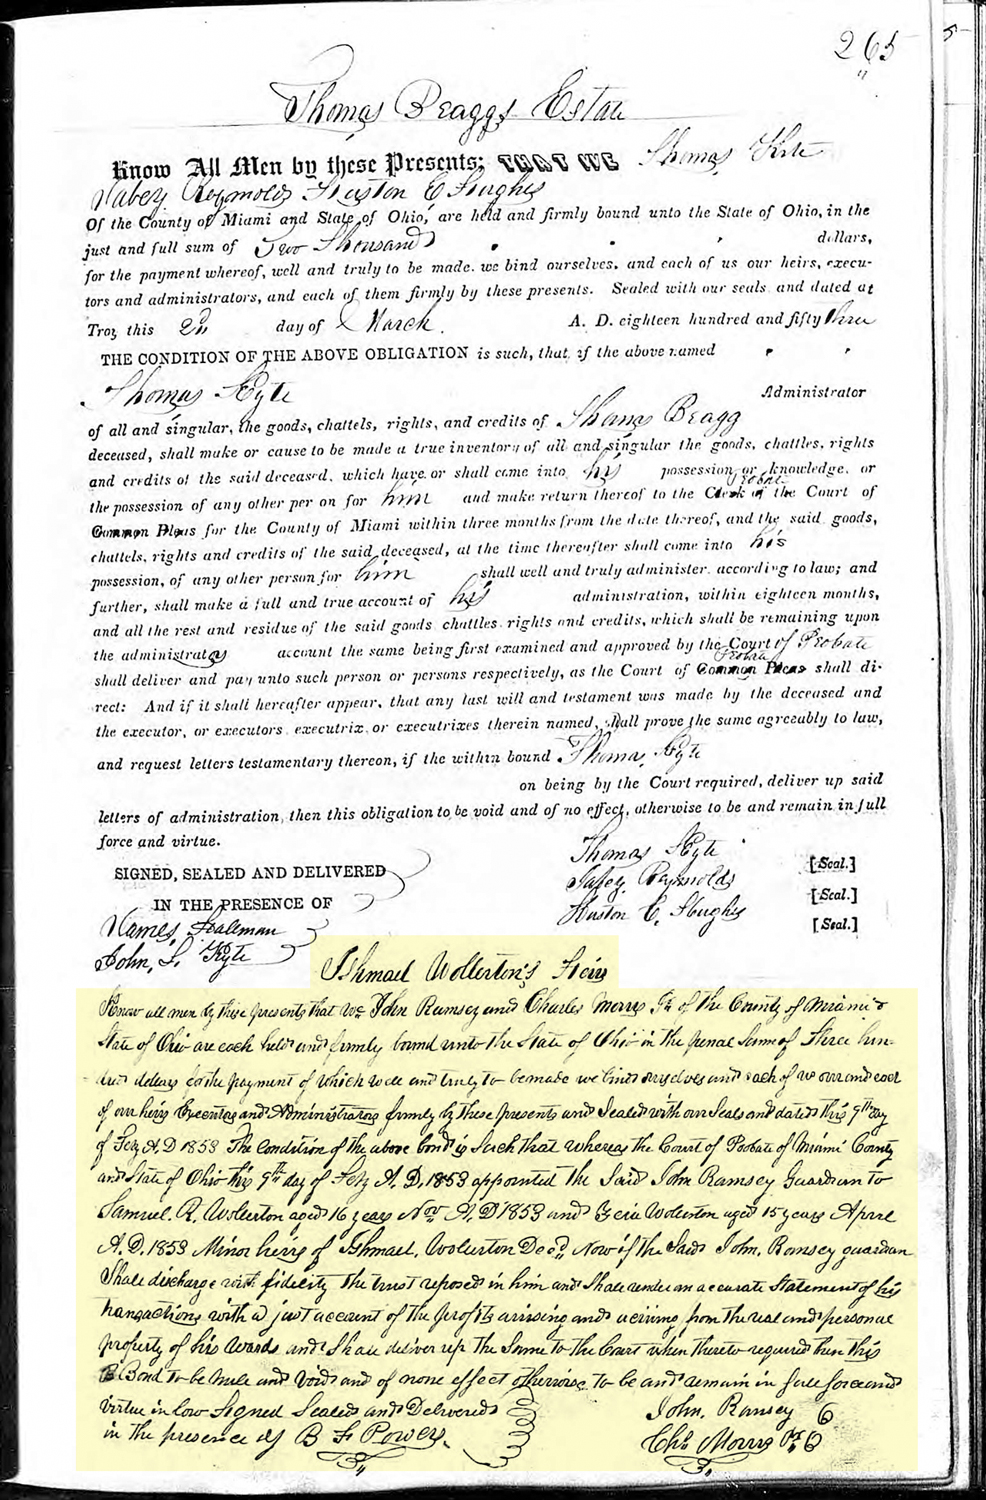 265
Thomas Braggs Estate
Know All Men by these Presents; THAT WE Thomas Kyte
Reynolds Huston C Hughes
Of the County of Miami and State of Ohio, are held and firmly bound unto the State of Ohio, in the
just and full sum of Two Thousand dollars,
for the payment whereof, well and truly to be made, we bind ourselves, and each of us our heirs, execu-
tors and administrators, and each of them firmly by these presents. Sealed with our seals and dated at
Troy this 2d day of March A. D. eighteen hundred and fifty three
THE CONDITION OF THE ABOVE OBLIGATION is such, that, if the above named
Thomas Kyte Administrator
of all and singular, the goods, chattels, rights, and credits of Thomas Bragg
deceased, shall make or cause to be made a true inventory of all and singular the goods, chattles, rights
and credits of the said deceased, which have or shall come into his possession or knowledge, or
the possession of any other per on for him and make return thereof to the Probate Clerk of the Court of
Common Pleas for the County of Miami within three months from the date thereof, and the said goods,
chattels, rights and credits of the said deceased, at the time thereafter shall come into his
possession, of any other person for him shall well and truly administer according to law; and
further, shall make a full and true account of his administration, within eighteen months,
and all the rest and residue of the said goods chattles rights and credits, which shall be remaining upon
the administrators account the same being first examined and approved by the Court of Probate
shall deliver and pay unto such person or persons respectively, as the Court of Probate Common Pleas shall di-
rect: And if it shall hereafter appear, that any last will and testament was made by the deceased and
the executor, or executors executrix or executrixes therein named, shall prove the same agreeably to law,
and request letters testamentary thereon, if the within bound Thomas Kyte
on being by the Court required, deliver up said
letters of administration, then this obligation to be void and of no effect, otherwise to be and remain in full
force and virtue.
SIGNED, SEALED AND DELIVERED
IN THE PRESENCE OF
Thomas Kyte [Seal.]
Reynolds [Seal.]
Huston C. Hughes [Seal.]
James
John S. Kyte
Ishmael Wollerton's Heirs
Know all men by these presents that we John Ramsey and Charles Morris Jr of the County of Miami &
State of Ohio are each held and firmly bound unto the State of Ohio in the penal Sum of Three hun-
dred dollars for the payment of which well and truly to be made we bind ourselves and each of us our and each
of our heirs Executors and Administrators firmly by these presents and Sealed with our Seals and dated this 9th day
of Feby A.D 1853 The condition of the above bond is Such that whereas the Court of Probate of Miami County
and State of Ohio this 9th day of Feby A.D. 1853 appointed the Said John Ramsey Guardian to
Samuel R. Wollerton aged 16 years Nov A.D 1853 and Wollerton aged 15 years April
A.D. 1853 Minor heirs of Ishmael Wollerton Decd Now if the Said John Ramsey guardian
Shall discharge with fidelity the trust reposed in him and Shall render an accurate Statement of his
transactions with a just account of the profits arising and acruing from the real and personal
property of his Wards and Shall deliver up the Same to the Court when thereto required then this
Bond to be Null and Void and of none effect otherwise to be and remain in full force and
virtue in law Signed Sealed and Delivered
in the presence of B F Powers
John Ramsey
Chs Morris Jr